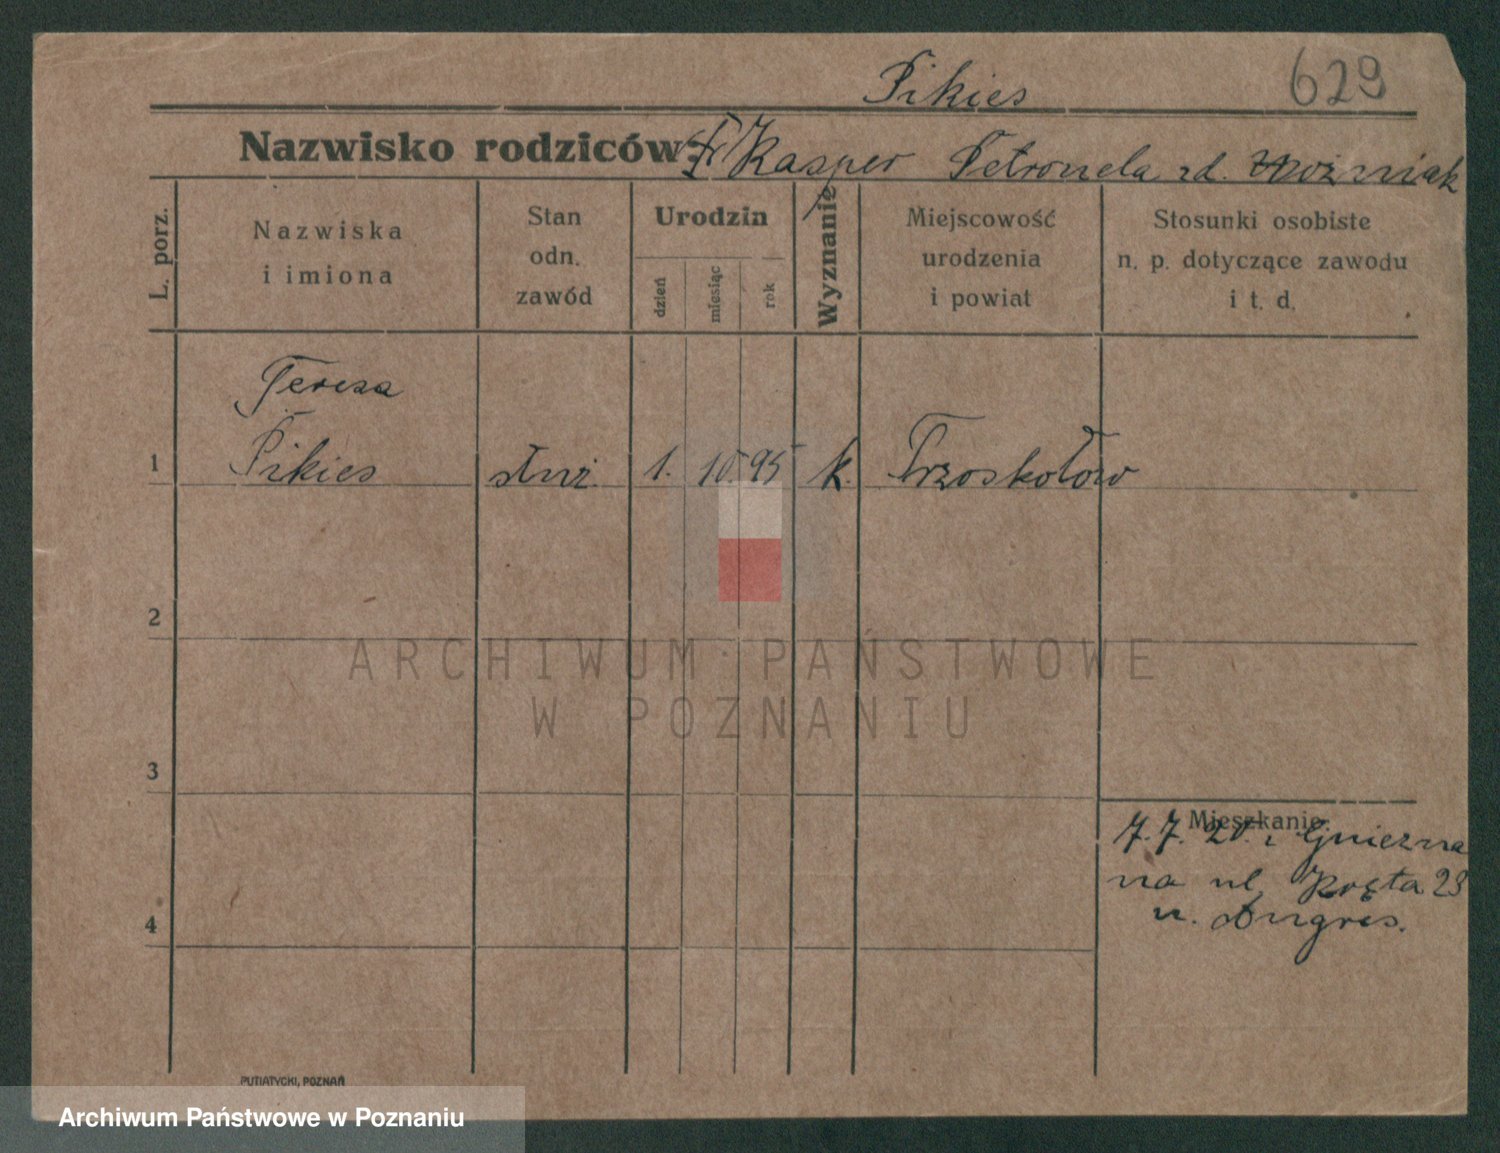 Pikies
629
Nazwisko rodziców: Kasper Petronela zd. Woźniak
L. porz.
Nazwiska
i imiona
Stan
odn.
zawód
Urodzin
dzień
miesiąc
rok
Wyznanie
Miejscowość
urodzenia
i powiat
Stosunki osobiste
n. p. dotyczące zawodu
i t. d.
Teresa
1 Pikies służ. 1. 10. 95 k. Trzoskołow
2
ARCHIWUM PAŃSTWOWE
W POZNANIU
3
Mieszkanie
7.7. 20. z Gniezna
na ul. Kręta 23
u.
4
PUTIATYCKI, POZNAŃ
Archiwum Państwowe w Poznaniu